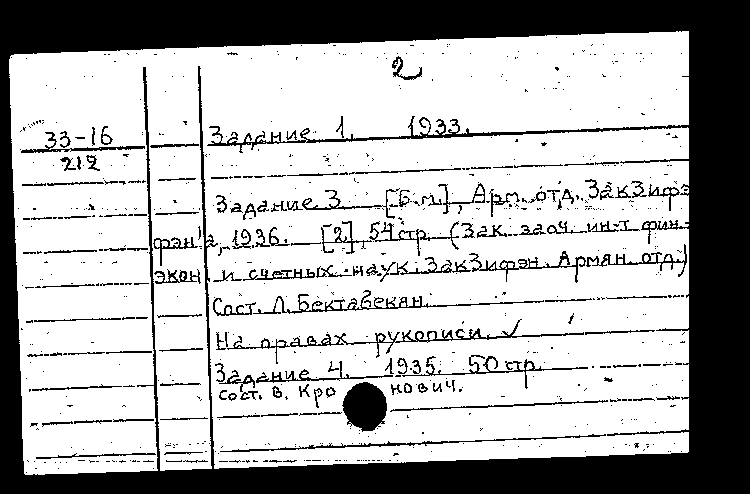 2
33-16
212
Задание 1. 1933.
Задание 3 [Б.м.], Арм. отд. ЗакЗифэ
фэн'а, 1936. [2], 54 стр. (Зак. заоч. ин-т фин.-
экон. и счетных наук. ЗакЗифэн. Армян. отд.)
Сост. Л. Бектабекян.
На правах рукописи. ✓
Задание 4. 1935. 50 стр.
сост. В. Кро нович.